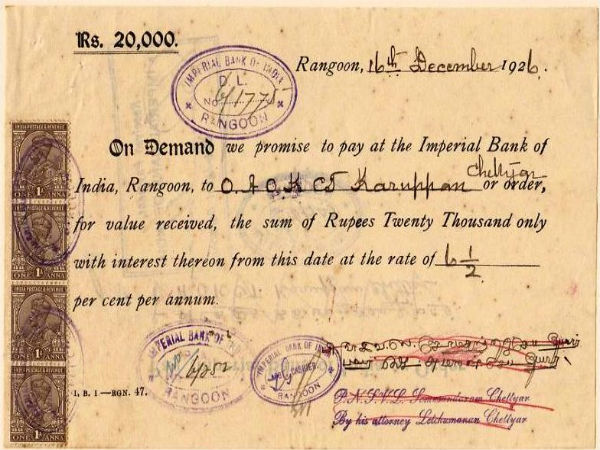 Rs. 20,000.
Rangoon, 16th December 1926.
IMPERIAL BANK OF INDIA
D. L.
No.
RANGOON
On Demand we promise to pay at the Imperial Bank of
India, Rangoon, to O. A. O. K. CT Karuppan Chettyar or order,
for value received, the sum of Rupees Twenty Thousand only
with interest thereon from this date at the rate of 6 1/2
per cent per annum.
IMPERIAL BANK OF INDIA
RANGOON
IMPERIAL BANK OF INDIA
CASHIER
RANGOON
P. N. S. V. L. Somasundaram Chettyar
By his attorney Letchumanan Chettyar
I. B. I—RGN. 47.
INDIA POSTAGE & REVENUE
1A
ONE ANNA
INDIA POSTAGE & REVENUE
1A
ONE ANNA
INDIA POSTAGE & REVENUE
1A
ONE ANNA
INDIA POSTAGE & REVENUE
1A
ONE ANNA